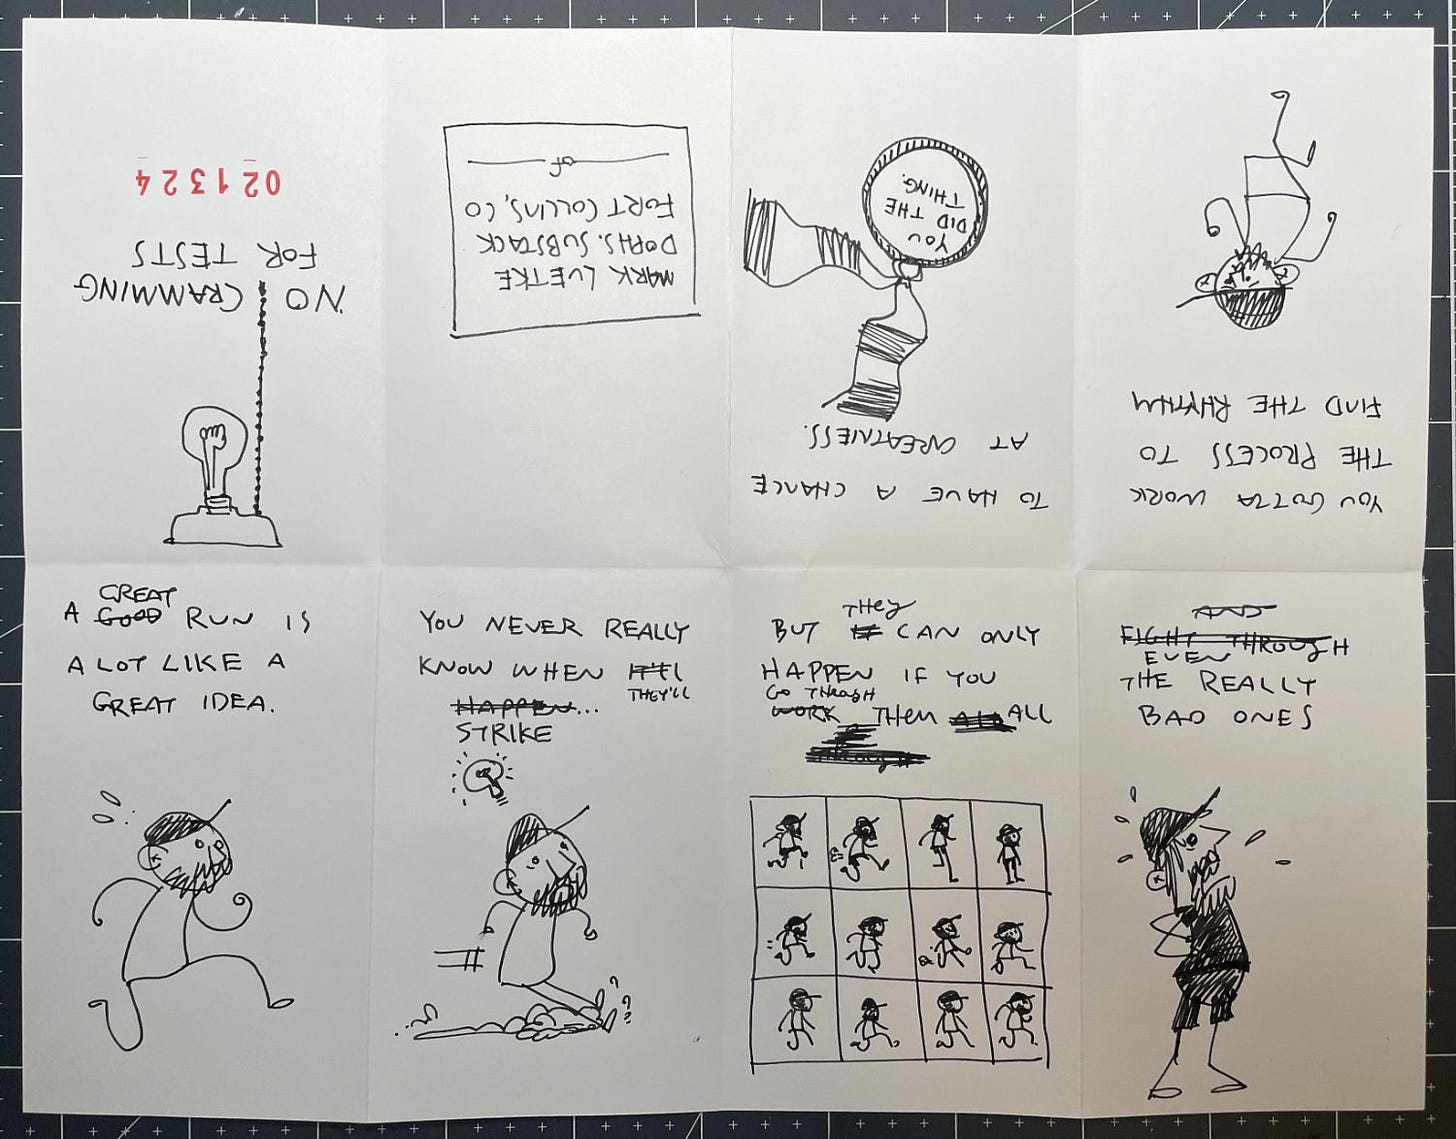 NO CRAMMING
FOR TESTS
021324
GREAT
A GOOD RUN IS
A LOT LIKE A
GREAT IDEA.
YOU NEVER REALLY
KNOW WHEN IT'LL
THEY'LL
HAPPEN...
STRIKE
THEY
BUT IT CAN ONLY
HAPPEN IF YOU
GO THROUGH
WORK THEM ALL ALL
THROUGH
AND
FIGHT THROUGH
EVEN
THE REALLY
BAD ONES
YOU GOTTA WORK
THE PROCESS TO
FIND THE RHYTHM
TO HAVE A CHANCE
AT GREATNESS.
YOU
DID THE
THING.
MARK LUETKE
DOPHS.SUBSTACK
FORT COLLINS, CO
OF